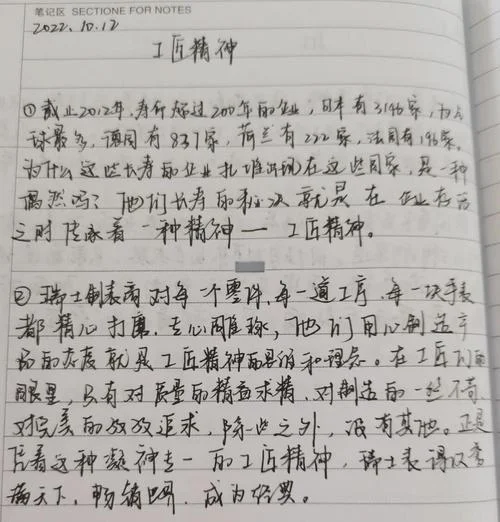 笔记区 SECTIONE FOR NOTES
2022.10.12
工匠精神
①截止2012年,寿命超过200年的企业,日本有3146家,为全
球最多,德国有837家,荷兰有222家,法国有196家。
为什么这些长寿的企业扎堆出现在这些国家,是一种
偶然吗?他们长寿的秘诀就是在企业存活
之时传承着一种精神—工匠精神。
②瑞士制表商对每一个零件、每一道工序、每一块手表
都精心打磨,专心雕琢,他们用心制造产
品的态度就是工匠精神的和理念。在工匠们的
眼里,只有对质量的精益求精,对制造的一丝不苟
对完美的孜孜追求,除此之外,没有其他。正是
凭着这种凝神专一的工匠精神,瑞士表得以誉
满天下,畅销世界,成为经典。